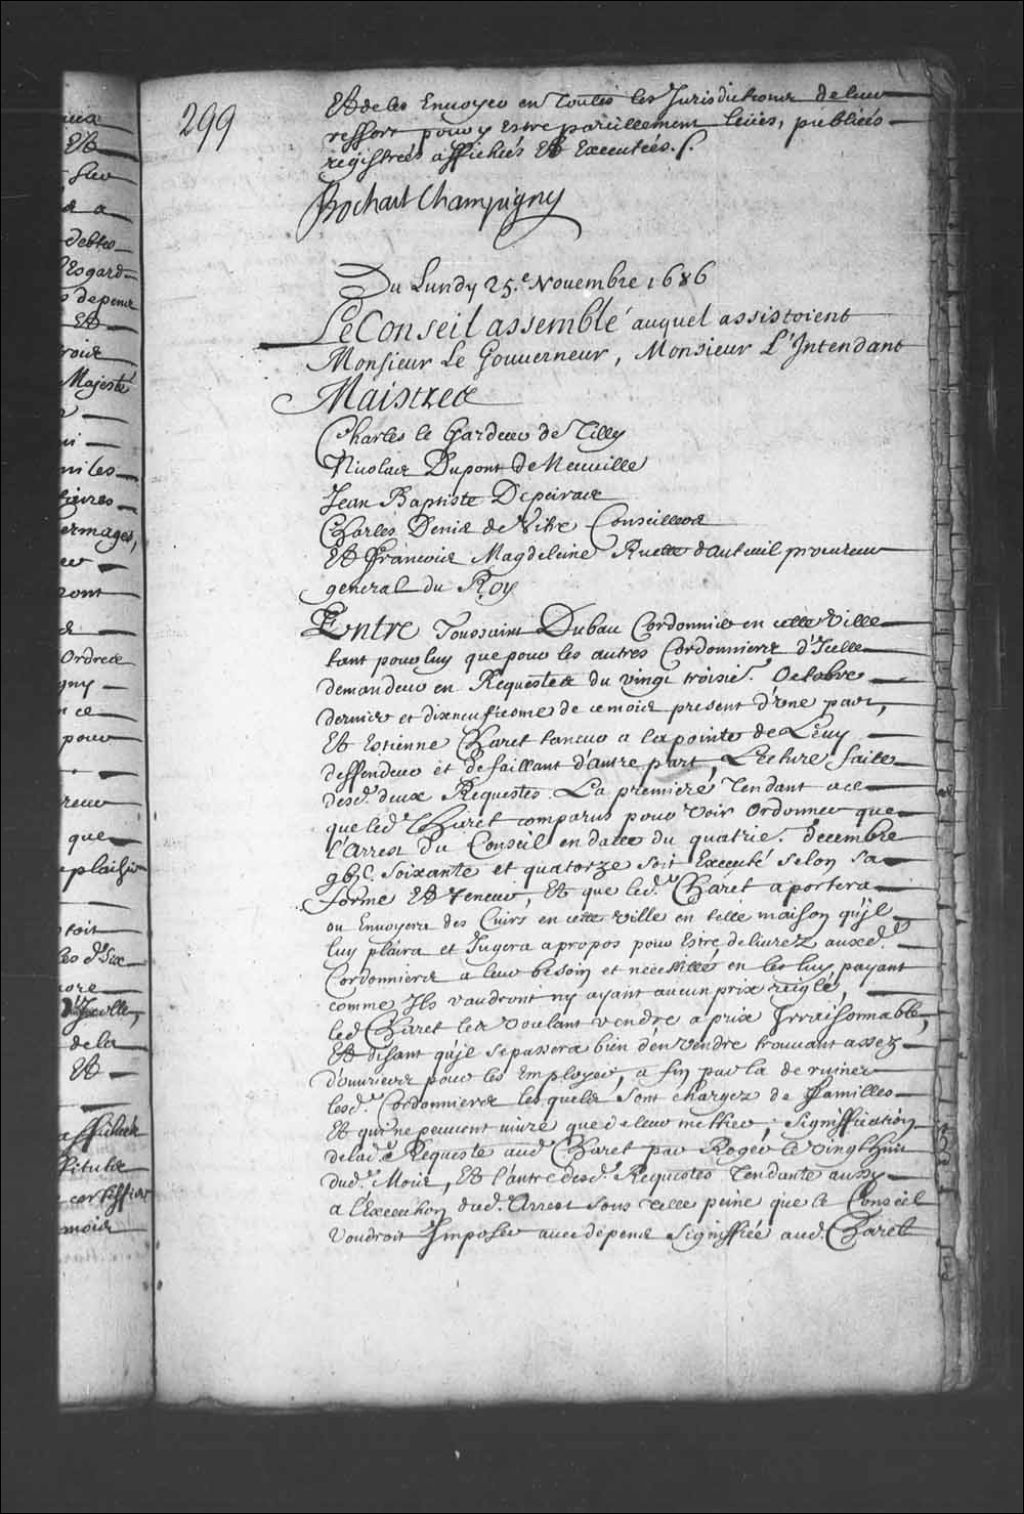 299
Et de les Envoyer en Toutes les Jurisdictions de leur
ressort pour y Estre pareillement leües, publiées
registrées affichées Et Executées.
Bochart Champigny
Du Lundy 25.e Novembre 1686
Le Conseil assemblé auquel assistoient
Monsieur Le Gouverneur, Monsieur L'Intendant
Maistres
Charles le Gardeur de Tilly
Nicolas Dupont de Neuville
Jean Baptiste Depeiras
Charles Denis de Vitré Conseillers
Et Francois Magdeleine Ruette dauteuil procureur
general du Roy
Entre Toussaint Dubau Cordonnier en cette Ville
tant pour luy que pour les autres Cordonniers d'Icelle
demandeur en Requestes du vingt troisie. Octobre
dernier et dixneufiesme de ce mois present d'une part,
Et Estienne Charet tanneur a la pointe de Levy
deffendeur et defaillant d'autre part, Lecture faite
desd. deux Requestes. La premiere Tendant a ce
que led. Charet comparus pour Voir Ordonner que
l'Arrest du Conseil en datte du quatrie. Decembre
gbjC. Soixante et quatorze soit Executé selon sa
forme Et teneur, Et que led. Charet aportera
ou Envoyera des Cuirs en cette Ville en telle maison qu'jl
luy plaira et Jugera apropos pour Estre delivrez auxd.
Cordonniers a leur besoin et necessité en les luy payant
comme Ils vaudront ny ayant aucun prix reiglé,
led Charet les Voulant vendre a prix Irraisonnable,
Et disant qu'jl se passera bien d'en Vendre trouvant assez
d'ouvriers pour les Employer, a fin par la de ruiner
lesd. Cordonniers lesquels sont chargez de familles
Et qui ne peuvent vivre que de leur mettier, Signiffication
de lad. Requeste aud Charet par Roger le Vingt huit
dud. Mois, Et l'autre desd. Requestes Tendante aussy
a l'Execution dud. Arrest sous telle peine que le Conseil
Voudroit Imposer avec depens Signiffiée aud. Charet